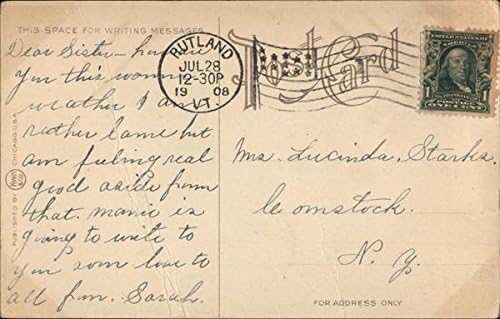 THIS SPACE FOR WRITING MESSAGES
Dear Sister
you this warm
weather I am
rather lame but
am feeling real
good aside from
that. mamie is
going to write to
you soon love to
all from Sarah.
PUBLISHED BY CHICAGO U.S.A.
RUTLAND
JUL 28
12-30P
1908
VT.
Post Card
UNITED STATES OF AMERICA
FRANKLIN
1 1
ONE CENT
Mrs. Lucinda, Starks.
Comstock.
N. Y.
FOR ADDRESS ONLY